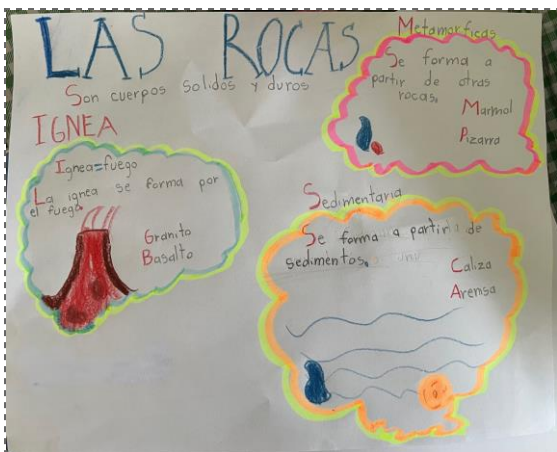 LAS ROCAS
Son cuerpos solidos y duros
IGNEA
Ignea=fuego
La ignea se forma por
el fuego
Granito
Basalto
Metamorficas
Se forma a
partir de otras
rocas.
Marmol
Pizarra
Sedimentaria
Se forma a partir de
sedimentos.
Caliza
Arensa